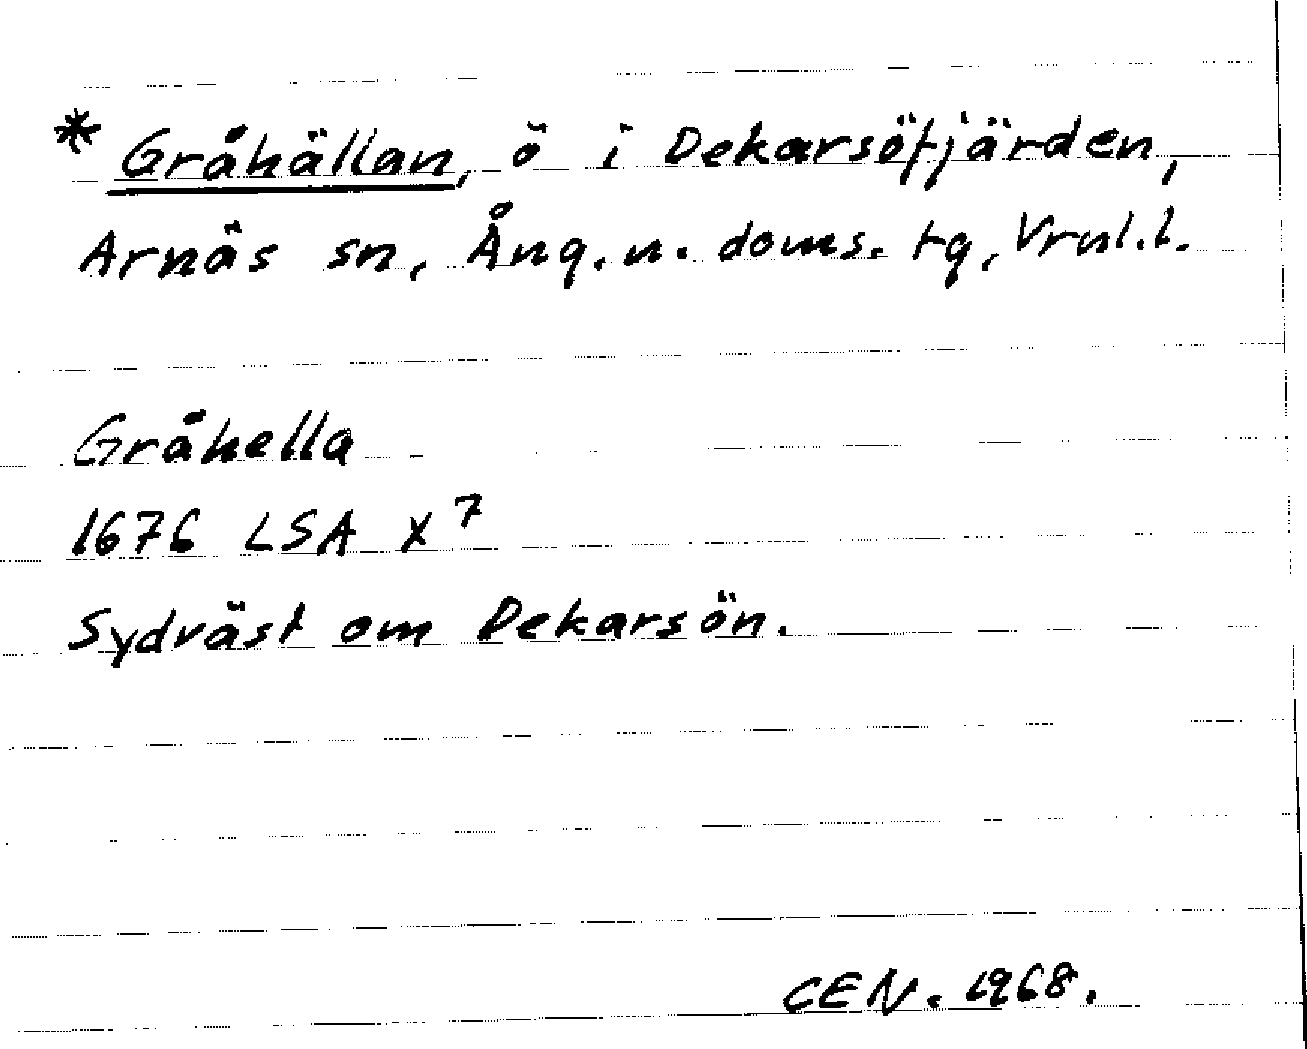 * Gråhällan, ö i Dekarsöfjärden,
Arnäs sn, Ång. n. doms. tg, Vrnl.l.
Gråhella
1676 LSA X 7
Sydväst om Dekarsön.
CEN. 1968.